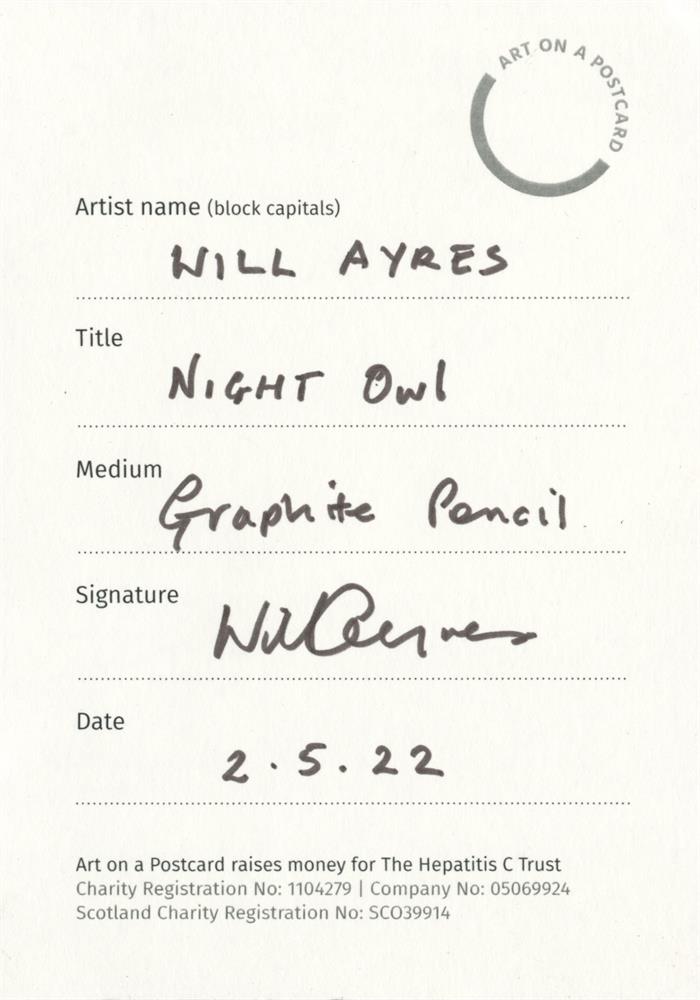 ART ON A POSTCARD
Artist name (block capitals)
WILL AYRES
Title
NIGHT Owl
Medium
Graphite Pencil
Signature
Will Ayres
Date
2.5.22
Art on a Postcard raises money for The Hepatitis C Trust
Charity Registration No: 1104279 | Company No: 05069924
Scotland Charity Registration No: SCO39914